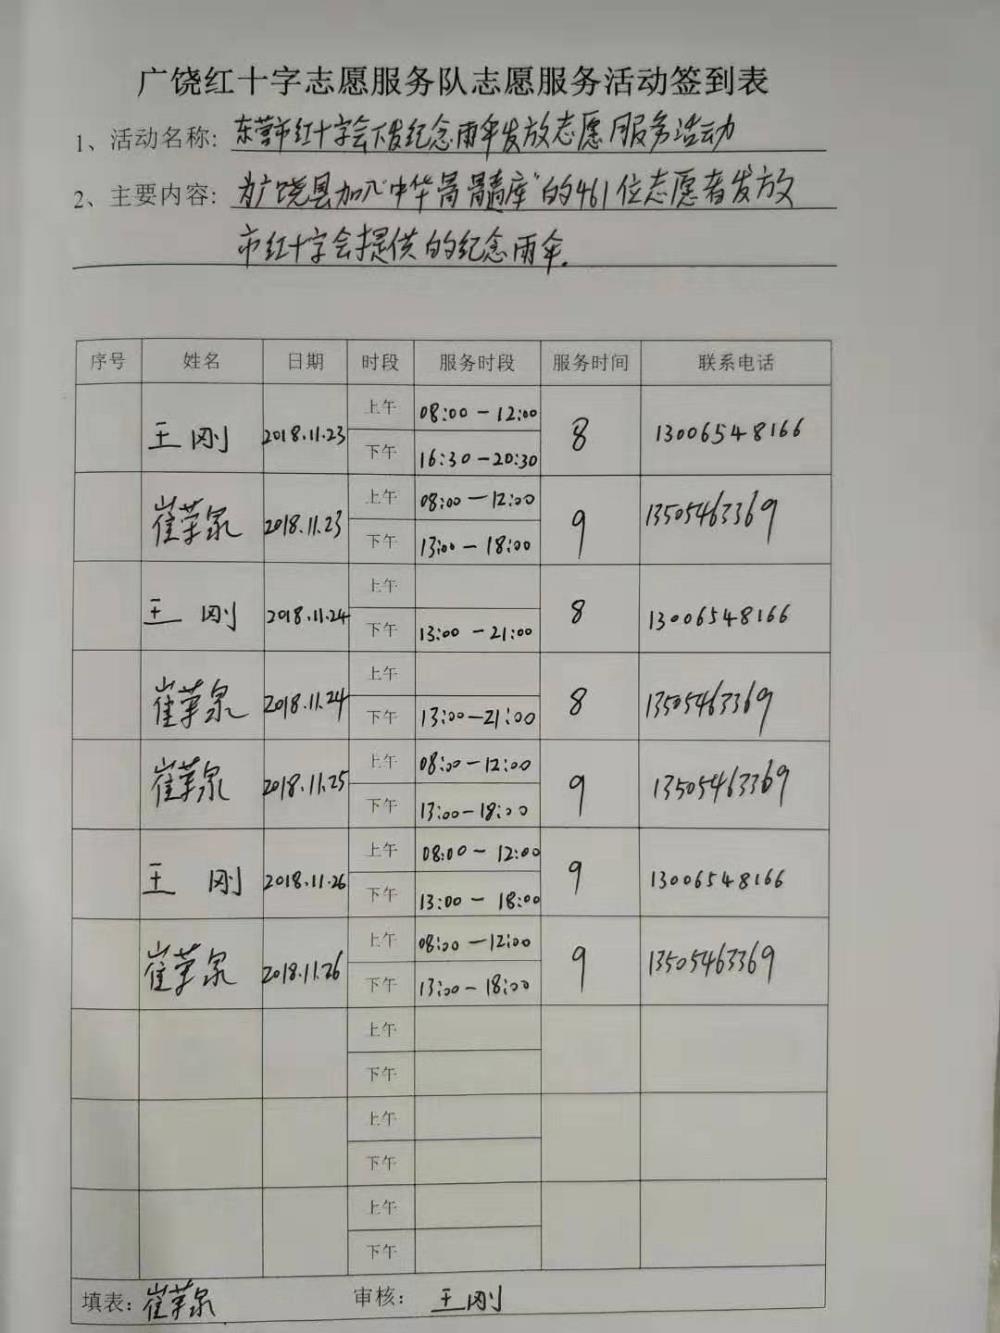 广饶红十字志愿服务队志愿服务活动签到表
1、活动名称: 东营市红十字会下发纪念雨伞发放志愿服务活动
2、主要内容: 为广饶县加入"中华骨髓库"的461位志愿者发放
市红十字会提供的纪念雨伞.
序号 姓名 日期 时段 服务时段 服务时间 联系电话
上午 08:00-12:00
王刚 2018.11.23 8 13006548166
下午 16:30-20:30
上午 08:00-12:00
崔荣泉 2018.11.23 9 13505463369
下午 13:00-18:00
上午
王刚 2018.11.24 8 13006548166
下午 13:00-21:00
上午
崔荣泉 2018.11.24 8 13505463369
下午 13:00-21:00
上午 08:00-12:00
崔荣泉 2018.11.25 9 13505463369
下午 13:00-18:00
上午 08:00-12:00
王刚 2018.11.26 9 13006548166
下午 13:00-18:00
上午 08:00-12:00
崔荣泉 2018.11.26 9 13505463369
下午 13:00-18:00
上午
下午
上午
下午
上午
下午
填表: 崔荣泉 审核: 王刚